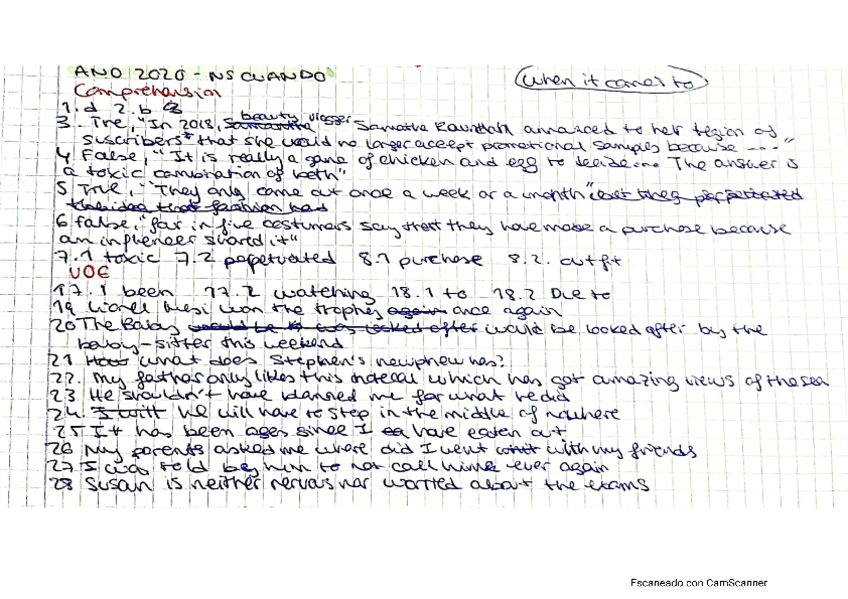 AÑO 2020 - NS CUANDO
when it comes to
Comprehension
1. d 2. b
3. True, "In 2018, beauty vlogger Samatha announced to her legion of
suscribers that she would no longer accept promotional samples because ---"
4 False, "It is really a game of chicken and egg to decide... The answer is
a toxic combination of both"
5 True, "They only come out once a week or a month"
6 false, "four in five costumers say that they have made a purchase because
an influencer shared it"
7.1 toxic 7.2 perpetuated 8.1 purchase 8.2. outfit
UOE
17.1 been 17.2 watching 18.1 to 18.2 Due to
19 Lionel Messi won the trophy again once again
20 The Baby would be looked after by the
baby-sitter this weekend
21 How what does Stephen's newphew has?
22. My father only likes this hotel which has got amazing views of the sea
23. He shouldn't have blamed me for what he did
24. I will We will have to stop in the middle of nowhere
25 It has been ages since I have eaten out
26 My parents asked me where did I went with my friends
27 I was told by him to not call him ever again
28 Susan is neither nervous nor worried about the exams
Escaneado con CamScanner